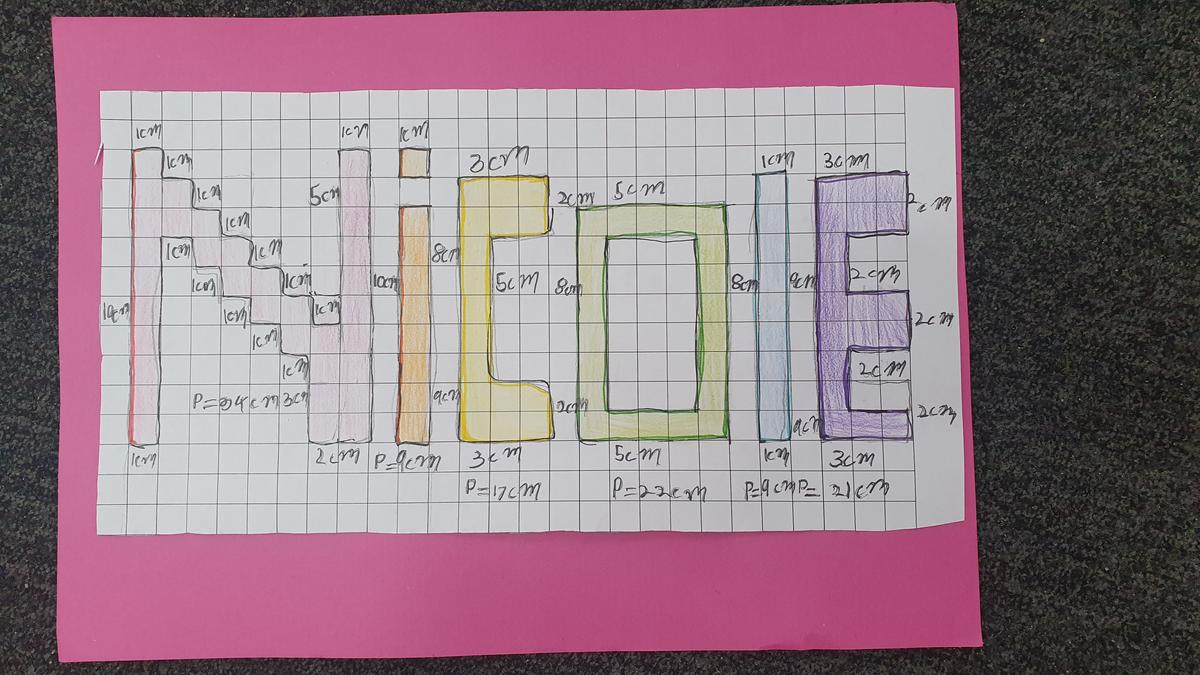 1cm 1cm 1cm
1cm 3cm 1cm 3cm
1cm 5cm 2cm 5cm 2cm
1cm
1cm 1cm 8cm
1cm 1cm 10cm 5cm 8cm 8cm 9cm 2cm
10cm 1cm 1cm 2cm
1cm
1cm 2cm
P=34cm 3cm 9cm 2cm 2cm
9cm
1cm 2cm P=9cm 3cm 5cm 1cm 3cm
P=17cm P=22cm P=9cm P= 21cm